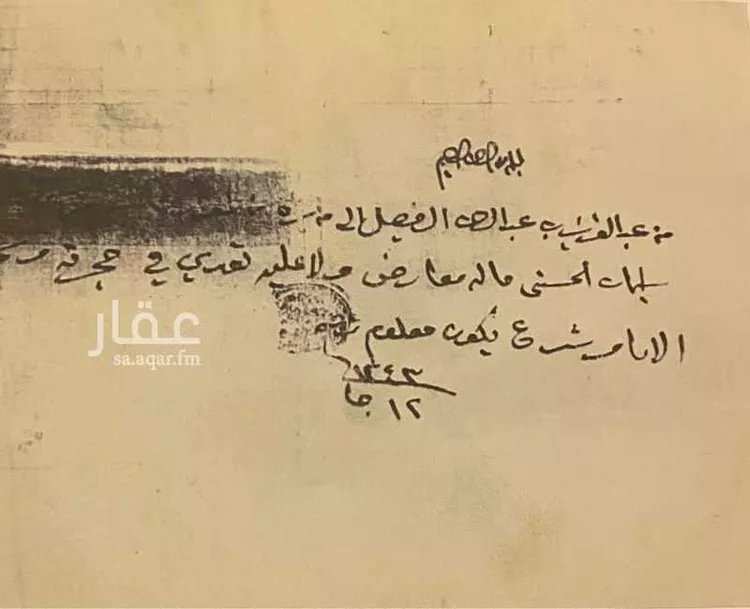 بسم الله الرحمن الرحيم
من عبدالعزيز بن عبدالرحمن الفيصل الى من يره
سليمان الحسني ماله معارض ولا عليه تعدي في حجرته
الا بأمر شرع يكون معلوم
١٣٤٣
١٢ جا
عقار
sa.aqar.fm